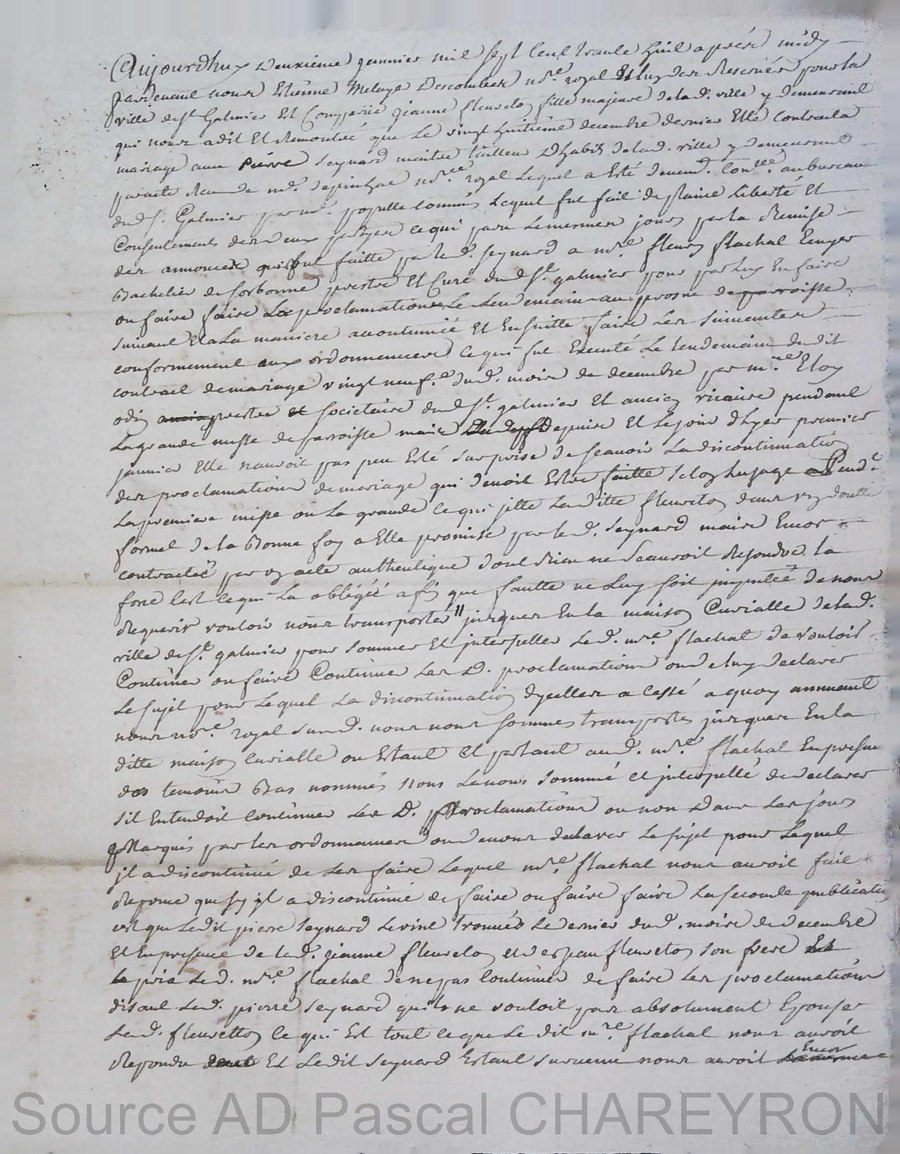 Aujourdhuy deuxieme janvier mil sept cent trante huit aprés midy
pardevant nous Etienne Metaye Descombes nre. royal et luy des Reservés pour la
ville de st Galmier Est Comparüe jeanne fleureton fille majeure de lad. ville y demeurant
qui nous a dit Et Remontré que Le vingt huitieme decembre dernier Elle contracta
mariage avec pierre seynard maitre tailleur d'habits de lad. ville y demeurant
par acte Receu de me. nre. royal Lequel a Esté au bureau
du st. Galmier par mr. populle commis Lequel fut fait de plaine Liberté Et
Consentement des deux partyes ce qui paru Lemesme jour par la Remise
des annonces qui fut faitte par le d. seynard a mre. fleury flachal
Bachelier de sorbonne prestre Et Curé du d. st. galmier pour par luy En faire
ou faire faire La proclamation Le Lendemain au prosne de parroisse
suivant Et a La maniere accoutumée Et En suitte faire Les suivantes
conformement aux ordonnences ce qui fut Executé Le lendemain du dit
contrait de mariage vingt neuf.e du d. mois de decembre par mre. Eloy
odin prestre et societaire du d. st. galmier Et ancien vicaire pendant
La grande messe de parroisse mais depuis Et Le jour d'hyer premier
janvier Elle n'auroit pas peu Esté surprise de sçavoir La discontinuation
des proclamations de mariage qui devoit Estre faitte selon Lusage Pend.t
La premiere messe ou La grande ce qui jette La ditte fleureton dans un doutte
formel de la Bonne foy a Elle promise par le d. seynard mais Encor
contractée par un acte authentique dont Rien ne sçauroit Repondre La
force C'est ce qui La obligée afin que fautte ne Luy soit imputtée de nous
Requerir vouloir nous transporter jusques En la maison Curialle de la d.
ville de st. galmier pour sommer Et interpeller Le d. mre. flachal de vouloir
Continuer ou faire Continuer Les d. proclamations ou de luy declarer
Le sujet pour Lequel La discontinuation d'ycelles a Cessé a quoy annuant
nous nre. royal sus d. nous nous sommes transportés jusques En la
ditte maison Curialle ou Estant Et parlant au d. mre. flachal En presence
des temoins Bas nommés Nous Lavons sommé et interpellé de declarer
s'il Entendoit continuer Les d. proclamations ou non dans Les jours
Marqués par les ordonnences ou de nous declarer Le sujet pour Lequel
il a discontinué de Les faire Lequel mre. flachal nous auroit fait
Reponce que sy il a discontinué de faire ou faire faire La seconde publication
c'est que Le dit pierre seynard Le vint trouver Le dernier du d. mois de decembre
Et En presence de la d. jeanne fleureton et de jean fleureton son frere Et
Le pria Le d. mre. flachal de ne pas continuer de faire Les proclamations
disant Le d. pierre seynard qu'il ne vouloit pas absolument Epouser
La d. fleuretton ce qui Est tout ce que Le dit mre. flachal nous auroit
Repondu Et Le dit seynard Estant survenu nous auroit Encor
Source AD Pascal CHAREYRON